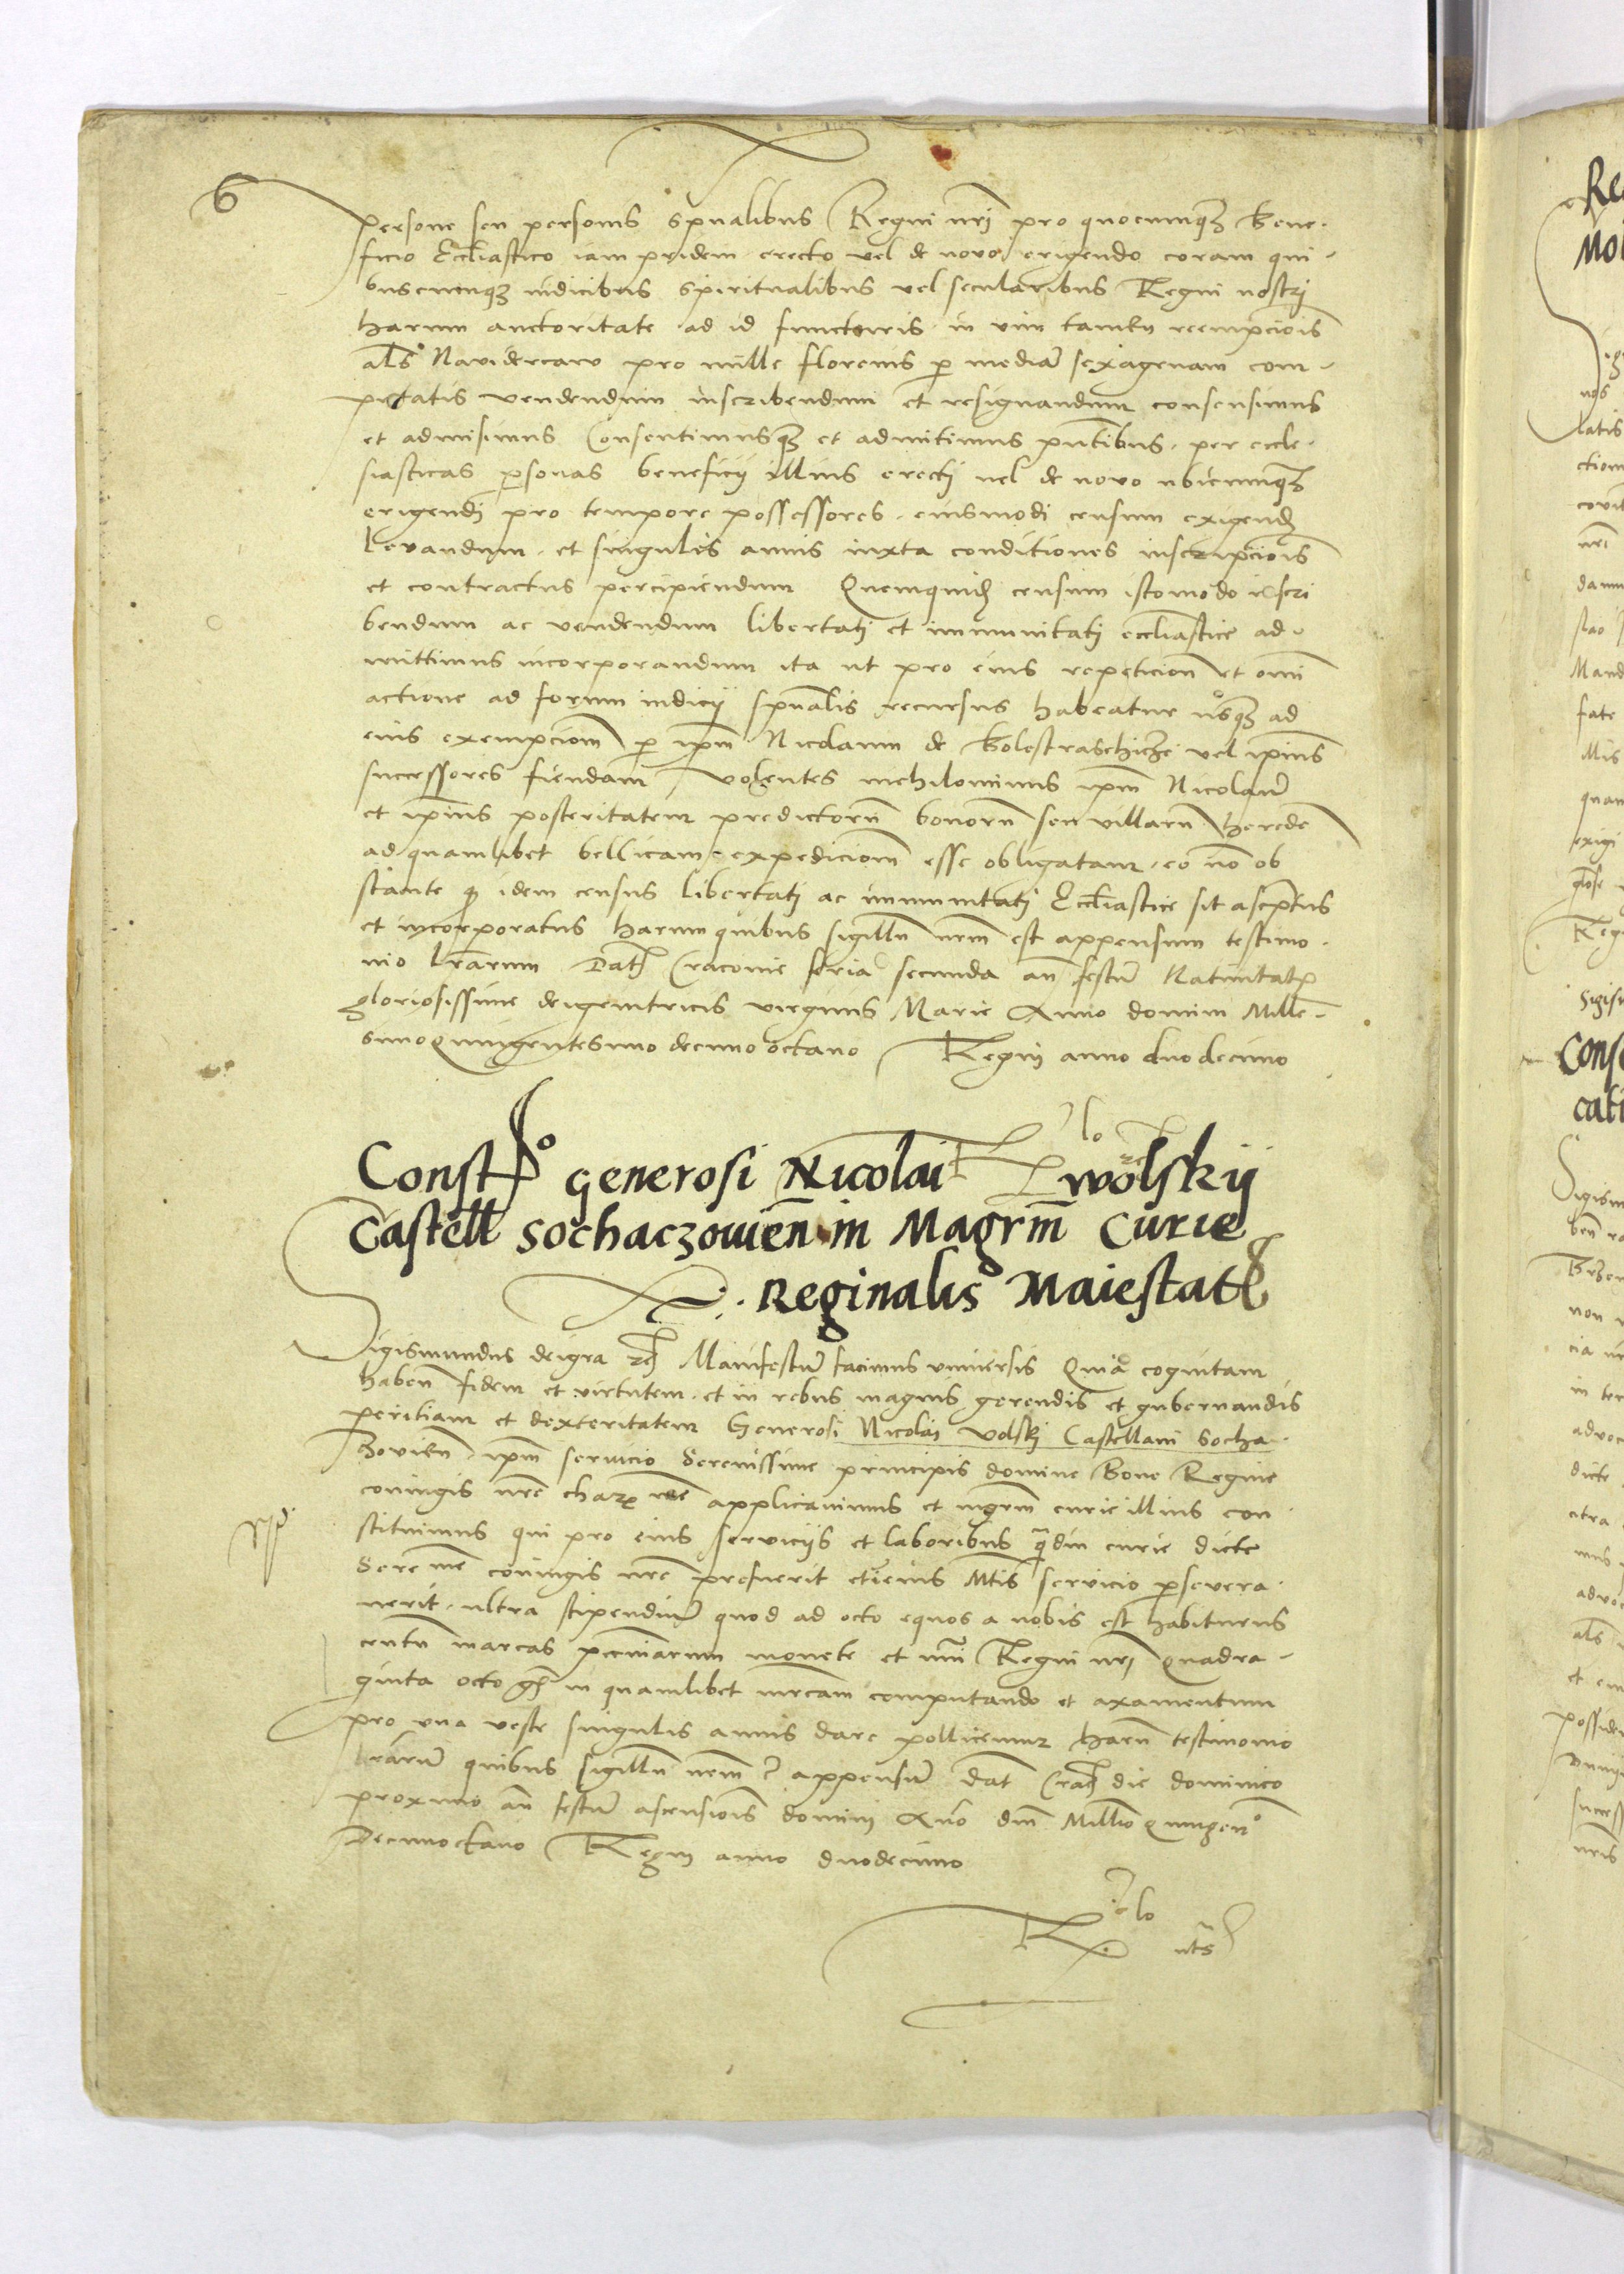 6
persone seu personis spualibus Regni nri pro quocumqz bene-
ficio Eccliastico iam pridem erecto vel de novo erigendo coram qui-
buscumqz iudicibus spiritualibus vel secularibus Regni nostri
harum auctoritate ad id functuris in vim tamen reempciois
als Navidercaw pro mille florenis p media sexagenam com-
putatis vendendum inscribendum et resignandum consensimus
et admisimus Consentimusqz et admitimus pntibus per eccle-
siasticas psonas beneficij illius erecti vel de novo ubicumqz
erigendi pro tempore possessores eiusmodi censum exigend
levandum et singulis annis iuxta conditiones inscripciois
et contractus percipiendum Quemquid censum istomodo inscri
bendum ac vendendum libertati et immunitati eccliastice ad-
mittimus incorporandum ita ut pro eius repeticion et omi
actione ad forum iudicij spualis recursus habeatur usqz ad
eius exempciom p ipm Nicolaum de Bolestraschicze vel ipius
successores fiendam Volentes nichilominus ipm Nicolau
et ipius posteritatem predictoru bonoru seu villaru herede
ad quamlibet bellicam expediciom esse obligatam eo no ob
stante q idem census libertati ac immunitati Eccliastice sit ascptus
et incorporatus harum quibus sigillu nrm est appensum testimo-
nio lrarum Dat Cracovie feria secunda an festu Nativitatis
gloriosissime deigenitricis virginis Marie Anno domini Mille-
simoquingentesimo decimo octavo Regni anno duodecimo
Generosi Nicolai wolskij
Castell Sochaczovien in Magrm Curie
Reginalis Maiestatis
Sigismundus deigra Manifestu facimus universis Quia cognitam
haben fidem et virtutem et in rebus magnis gerendis et gubernandis
peritiam et dexteritatem Generosi Nicolai Volskj Castellani Socha-
zovien ipm servicio Serenissime principis domine Bone Regine
coniugis nre applicavimus et mgrm curie illius con-
stituimus qui pro eius serviciis et laboribus qdiu curie dicte
Sere coniugis nre prefuerit Mtis servicio psevera-
verit ultra stipendiu quod ad octo equos a nobis est habiturus
centu marcas pecuniarum monete et nui Regni nri Quadra-
ginta octo gs in quamlibet mrcam computando et axamentum
pro una veste singulis annis dare pollicemur haru testimonio
lraru quibus sigillu nrm appensu Dat Crac die dominico
proximo an festu ascensiois domini Ano dni Millimo Quingen
Decimooctavo Regni anno duodecimo
uts